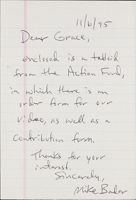 11/6/95
Dear Grace,
enclosed is a tabloid
from the Action Fund,
in which there is an
order form for our
video, as well as a
contribution form.
Thanks for your
interest.
Sincerely,
Mike